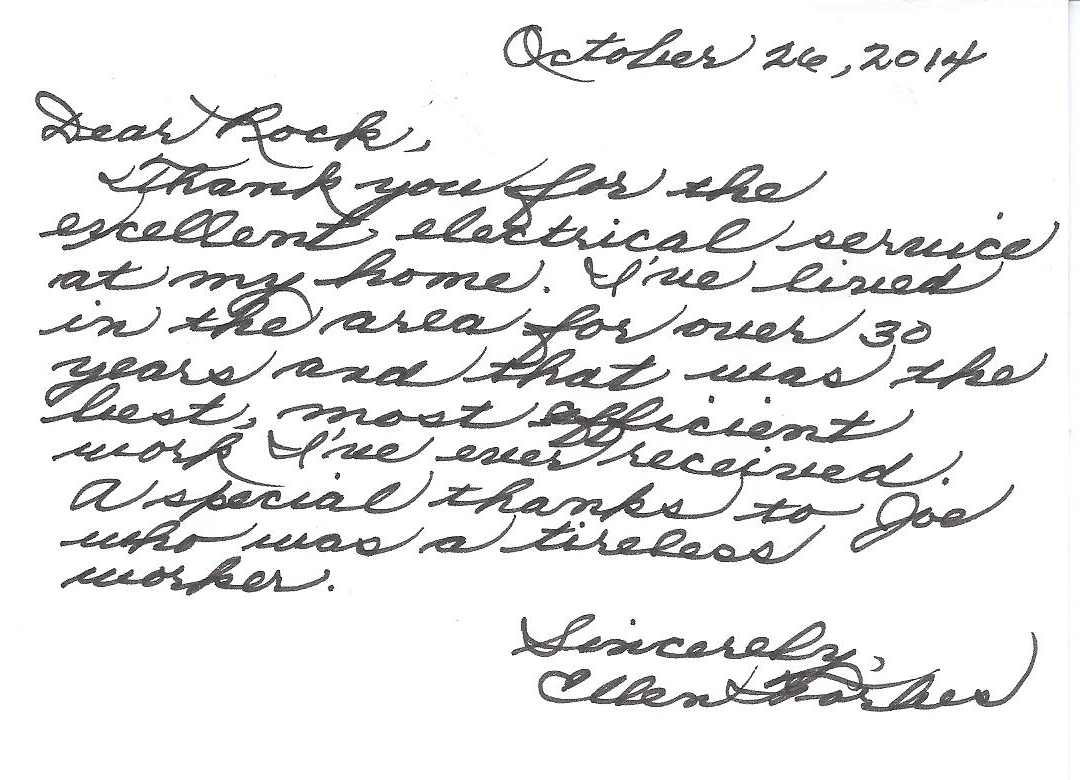 October 26, 2014
Dear Rock,
Thank you for the
excellent electrical service
at my home. I've lived
in the area for over 30
years and that was the
best, most efficient
work I've ever received.
A special thanks to Joe
who was a tireless
worker.
Sincerely,
Ellen